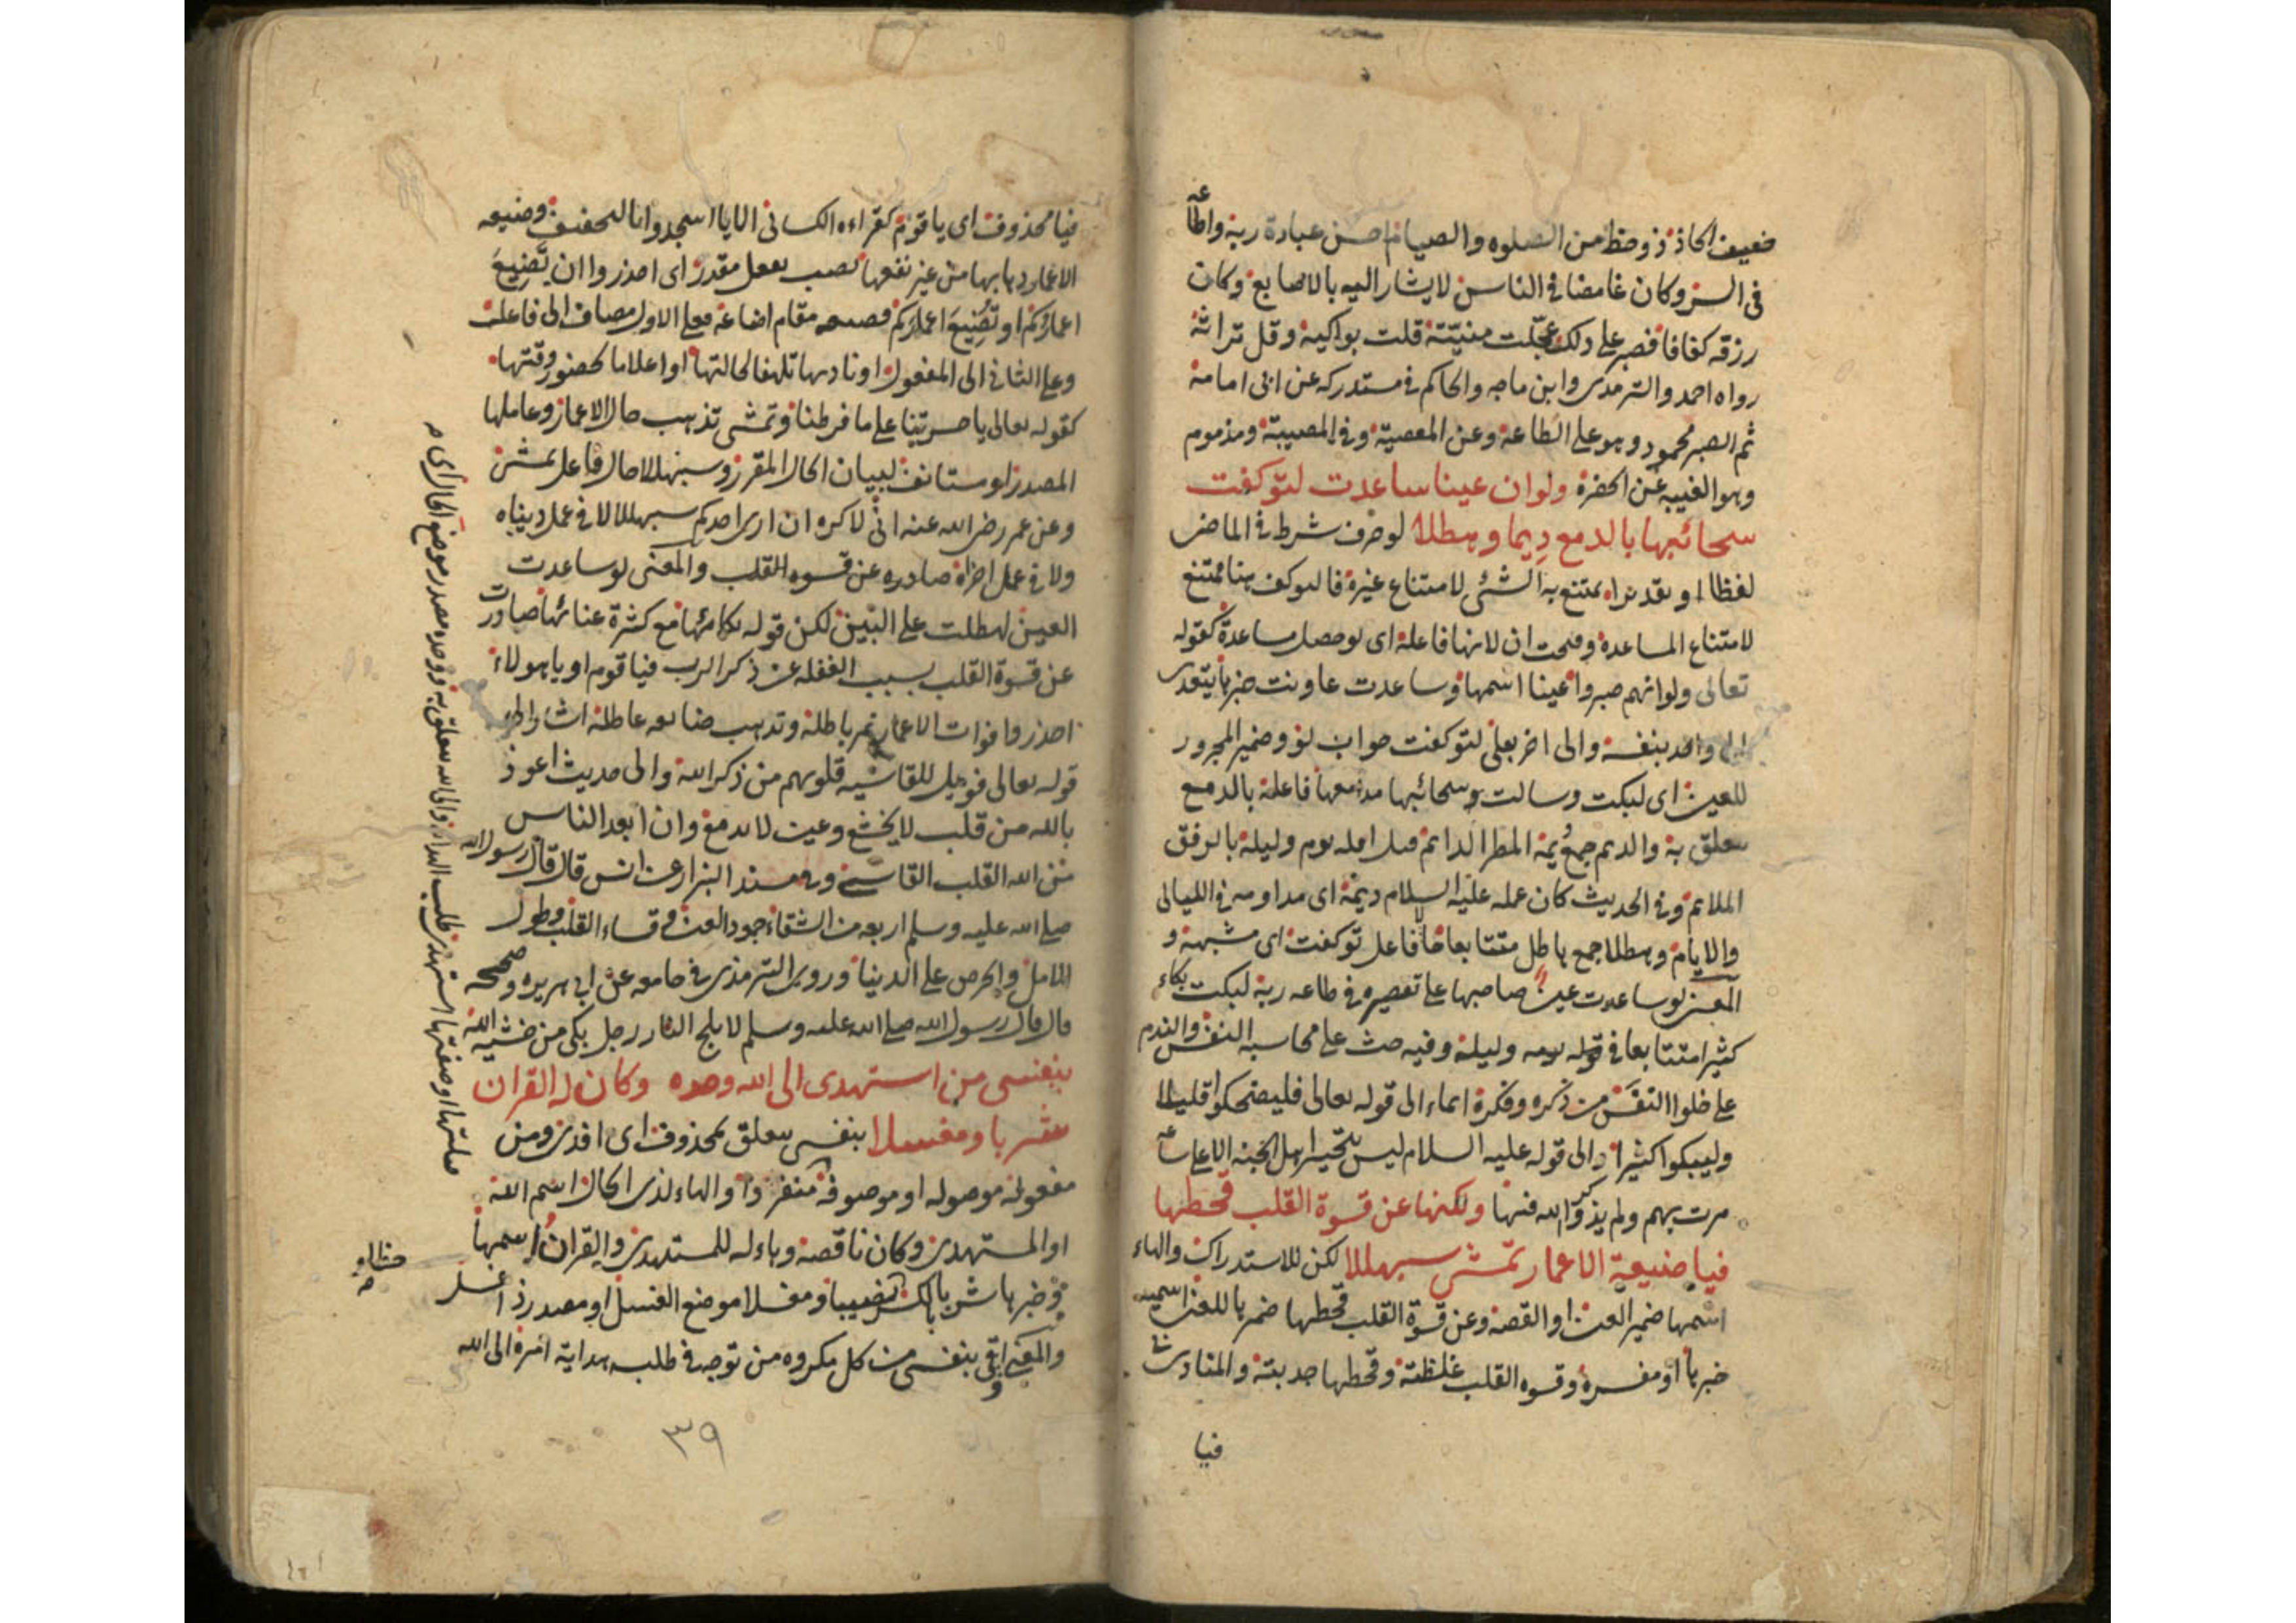 ضعيف الحاذ ذو حظ من الصلوه والصيام احسن عبادة ربه واطاعه
فى السر وكان غامضا فى الناس لا يشار اليه بالاصابع وكان
رزقه كفافا فصبر على ذلك عجلت منيته قلت بواكيه وقل تراثه
رواه احمد والترمذى وابن ماجه والحاكم فى مستدركه عن ابى امامة
ثم الصبر محمود وهو على الطاعة وعن المعصية وفى المصيبة ومذموم
وهو الغيبه عن الحضرة ولو ان عينا ساعدت لتوكفت
سحائبها بالدمع ديما وهطلا لو حرف شرط فى الماضى
لفظا او تقديرا يمتنع به الشئ لامتناع غيره فالتوكف هنا ممتنع
لامتناع المساعدة وفتحت ان لانها فاعلة اى لو حصل مساعدة كقوله
تعالى ولو انهم صبروا عينا اسمها وساعدت عاونت خبرها يتعدى
الى واحد بنفسه والى اخر بعلى لتوكفت جواب لو وضمير المجرور
للعين اى لبكت وسالت وسحائبها مدامعها فاعلة بالدمع
متعلق به والديم جمع ديمة المطر الدائم اقله يوم وليلة بالرفق
الملايم وفى الحديث كان عمله عليه السلام ديمة اى مداومه فى الليالى
والايام وهطلا جمع هاطل متتابعا فاعل توكفت اى مشبهة و
المعنى لو ساعدت عين صاحبها على تقصيره فى طاعه ربه لبكت بكاء
كثيرا متتابعا فى يومه وليلة وفيه حث على محاسبه النفس والندم
على خلوا النفس من ذكره وفكرة ايماء الى قوله تعالى فليضحكوا قليلا
وليبكوا كثيرا والى قوله عليه السلام ليس يتحسر اهل الجنه الا على ساعه
مرت بهم ولم يذكروا الله فيها ولكنها عن قسوة القلب قحطها
فيا ضيعة الاعمار تمشى سبهللا لكن للاستدراك والهاء
اسمها ضمير العين او القصه وعن قسوة القلب قحطها ضميرها للعين اسميه
خبرها او مفسرة وقسوه القلب غلظته وقحطها جدبته والمنادى فى
فيا
فيا محذوف اى يا قوم كقراءه الكسائى الا يا اسجدوا بالتخفيف وضيعه
الاعمار ذهابها من غير نفعها نصب بفعل مقدر اى احذروا ان تضيع
اعماركم او تضيع اعماركم فضيعه مقام اضاعة فعلى الاول مضاف الى فاعله
وعلى الثانى الى المفعول او ناديها تلهفا لحالتها او اعلاما لحضور وقتها
كقوله تعالى يا حسرتنا على ما فرطنا وتمشى تذهب حال الاعمار وعاملها
المصدر او مستانف لبيان الحال المقرر وسبهللا حال فاعل تمشى
وعن عمر رضى الله عنه انى لاكره ان ارى احدكم سبهللا لا فى عمل دنياه
ولا فى عمل اخراه صادره عن قسوه القلب والمعنى لو ساعدت
العين لهطلت على البين لكن قوله بكائها مع كثرة عنائها صادرت
عن قسوة القلب بسبب الغفله عن ذكر الرب فيا قوم او يا هولاء
احذروا فوات الاعمار تمر باطلة وتذهب ضائعه عاطلة اشار الى
قوله تعالى فويل للقاسيه قلوبهم من ذكر الله والى حديث اعوذ
بالله من قلب لا يخشع وعين لا تدمع وان ابعد الناس
من الله القلب القاسى وفى مسند البزار عن انس قال قال رسول الله
صلى الله عليه وسلم اربعه من الشقاء جمود العين وقساء القلب وطول
الامل والحرص على الدنيا وروى الترمذى فى جامعه عن ابى هريره وصححه
قال قال رسول الله صلى الله عليه وسلم لا يلج النار رجل بكى من خشيه الله
بنفسى من استهدى الى الله وحده وكان له القران
شربا ومغسلا بنفسى متعلق بمحذوف اى افدى ومن
مفعوله موصوله او موصوفة منفردا والهاء لذى الحال اسم الله
او المستهدى وكان ناقصة وهاء له للمستهدى والقران اسمها
وخبرها شربا بالكسر نصيبا ومغسلا موضع الغسل او مصدر ذا غسل
والمعنى اقى بنفسى من كل مكروه من توجه فى طلبه هداية امره الى الله
٣٩
صلتها او صفتها استهدى طلب الهداية والى الله متعلق به ووحده مصدر موضع الحال اى